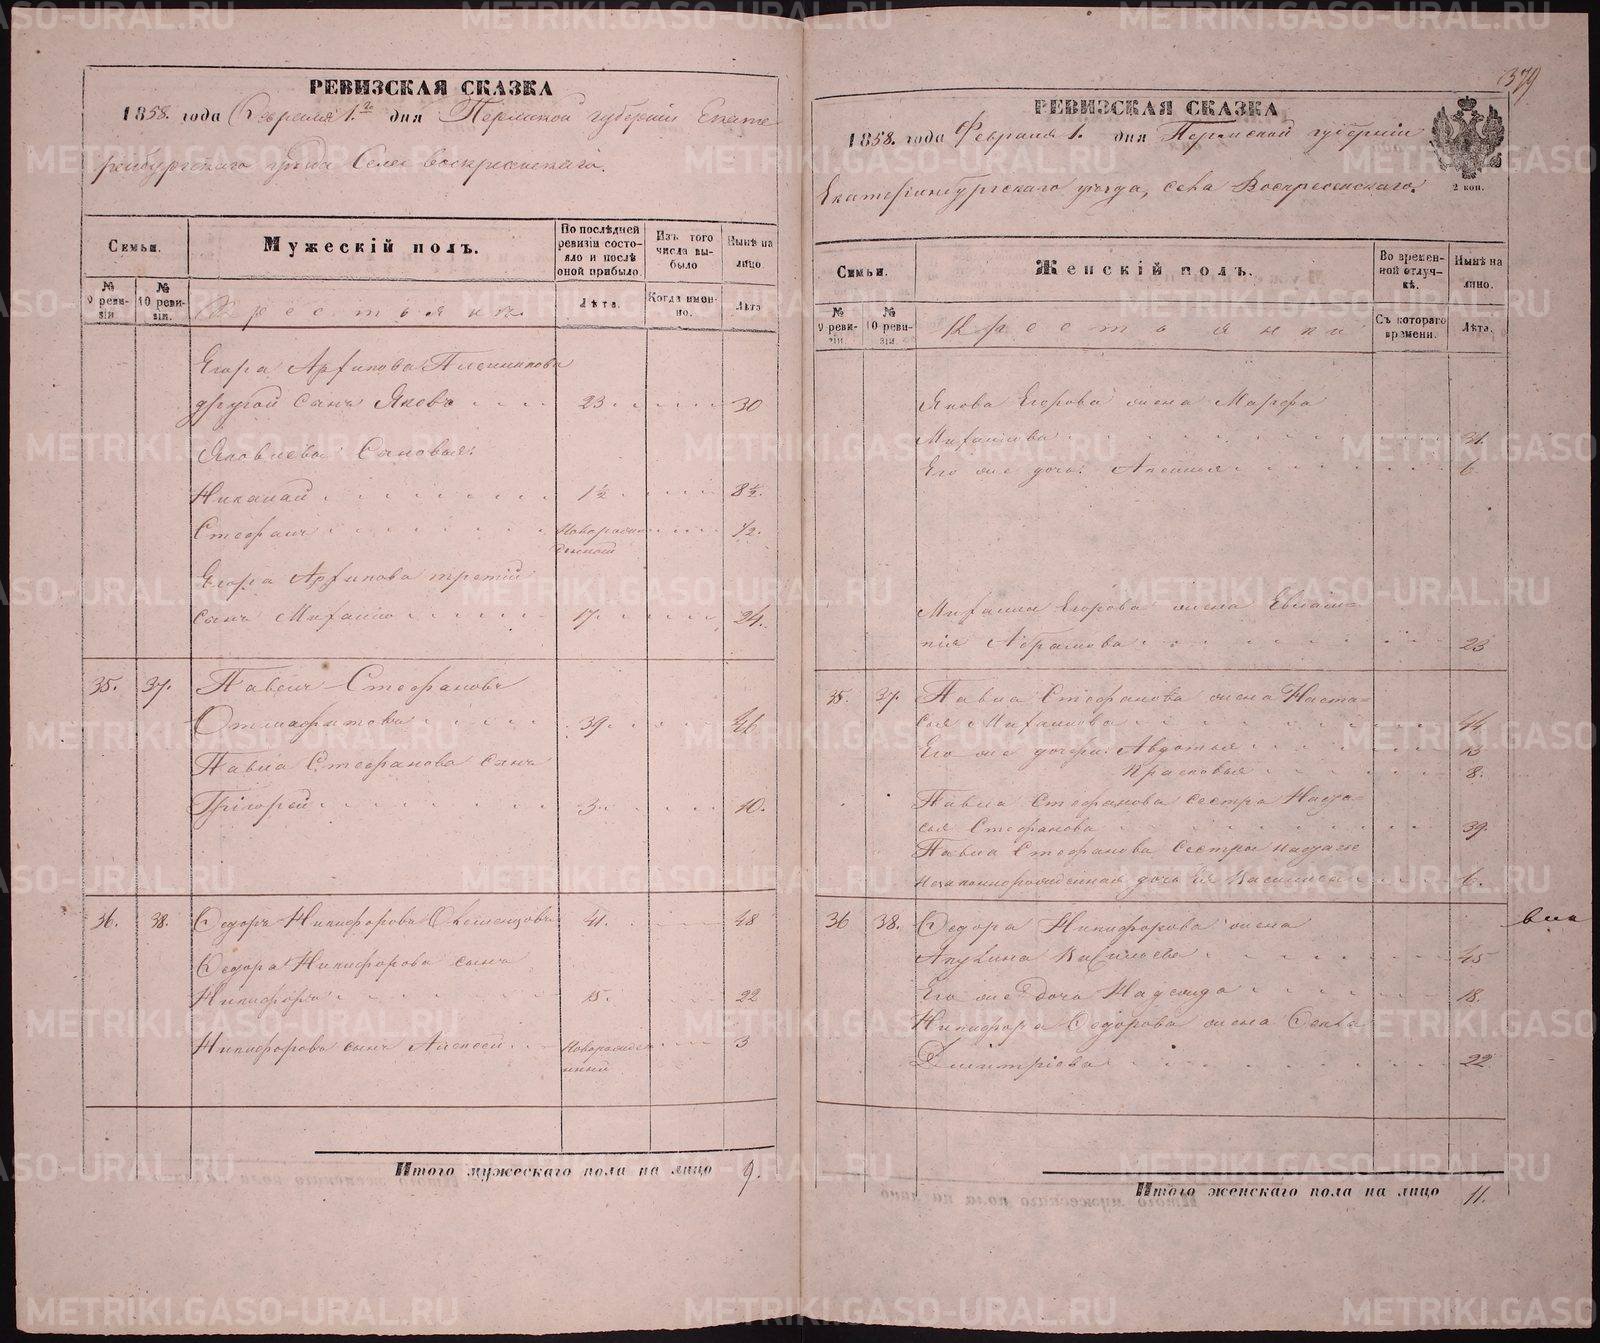 РЕВИЗСКАЯ СКАЗКА
1858. года Февраля 1.го дня Пермской губернiи Екате
ринбургскаго уѣзда Села Воскресенскаго.
Семьи.
Мужескiй полъ.
По послѣдней ревизiи состояло и послѣ оной прибыло.
Изъ того числа выбыло
Нынѣ на лицо.
№ 9 ревизiи
№ 10 ревизiи.
Крестьяне.
Лѣта.
Когда именно.
Лѣта
Егора Архипова
другой сынъ Яковъ 23 30
Яковлевы Сыновья:
Николай 1½ 8½.
Стефанъ Новорожденный ½.
Егора Архипова третiй
сынъ Михаило 17. 24.
35. 37. Павелъ Стефановъ
39. 46
Павла Стефанова сынъ
Григорей 3. 10.
36. 38. Федоръ Никифоровъ 41. 48
Федора Никифорова сынъ
Никифоръ 15. 22
Никифоровъ сынъ Алексей Новорожденный 3
Итого мужескаго пола на лицо 9.
379
РЕВИЗСКАЯ СКАЗКА
1858. года Февраля 1. дня Пермской губернiи
Екатеринбургскаго уѣзда, села Воскресенскаго.
2 коп.
Семьи.
Женскiй полъ.
Во временной отлучкѣ.
Нынѣ на лицо.
№ 9 ревизiи
№ 10 ревизiи
Крестьянки
Съ котораго времени.
Лѣта.
Якова Егорова жена Марфа
Михаилова 31.
Его же дочь: 6
Михаила Егорова жена Евлам=
пiя Абрамова 23
35. 37. Павла Стефанова жена Наста=
сья Михаилова 44
Его же дочери: Авдотья 13
Прасковья 8.
Павла Стефанова сестра Наста=
сья Стефанова 39.
Павла Стефанова сестры Настасьи
незаконнорожденная дочь Василиса 6.
36 38. Федора Никифорова жена
Васильева 45
Его же дочь Надежда 18.
Никифора Федорова жена Фекла
Дмитрiева 22
Итого женскаго пола на лицо 11.
METRIKI.GASO-URAL.RU